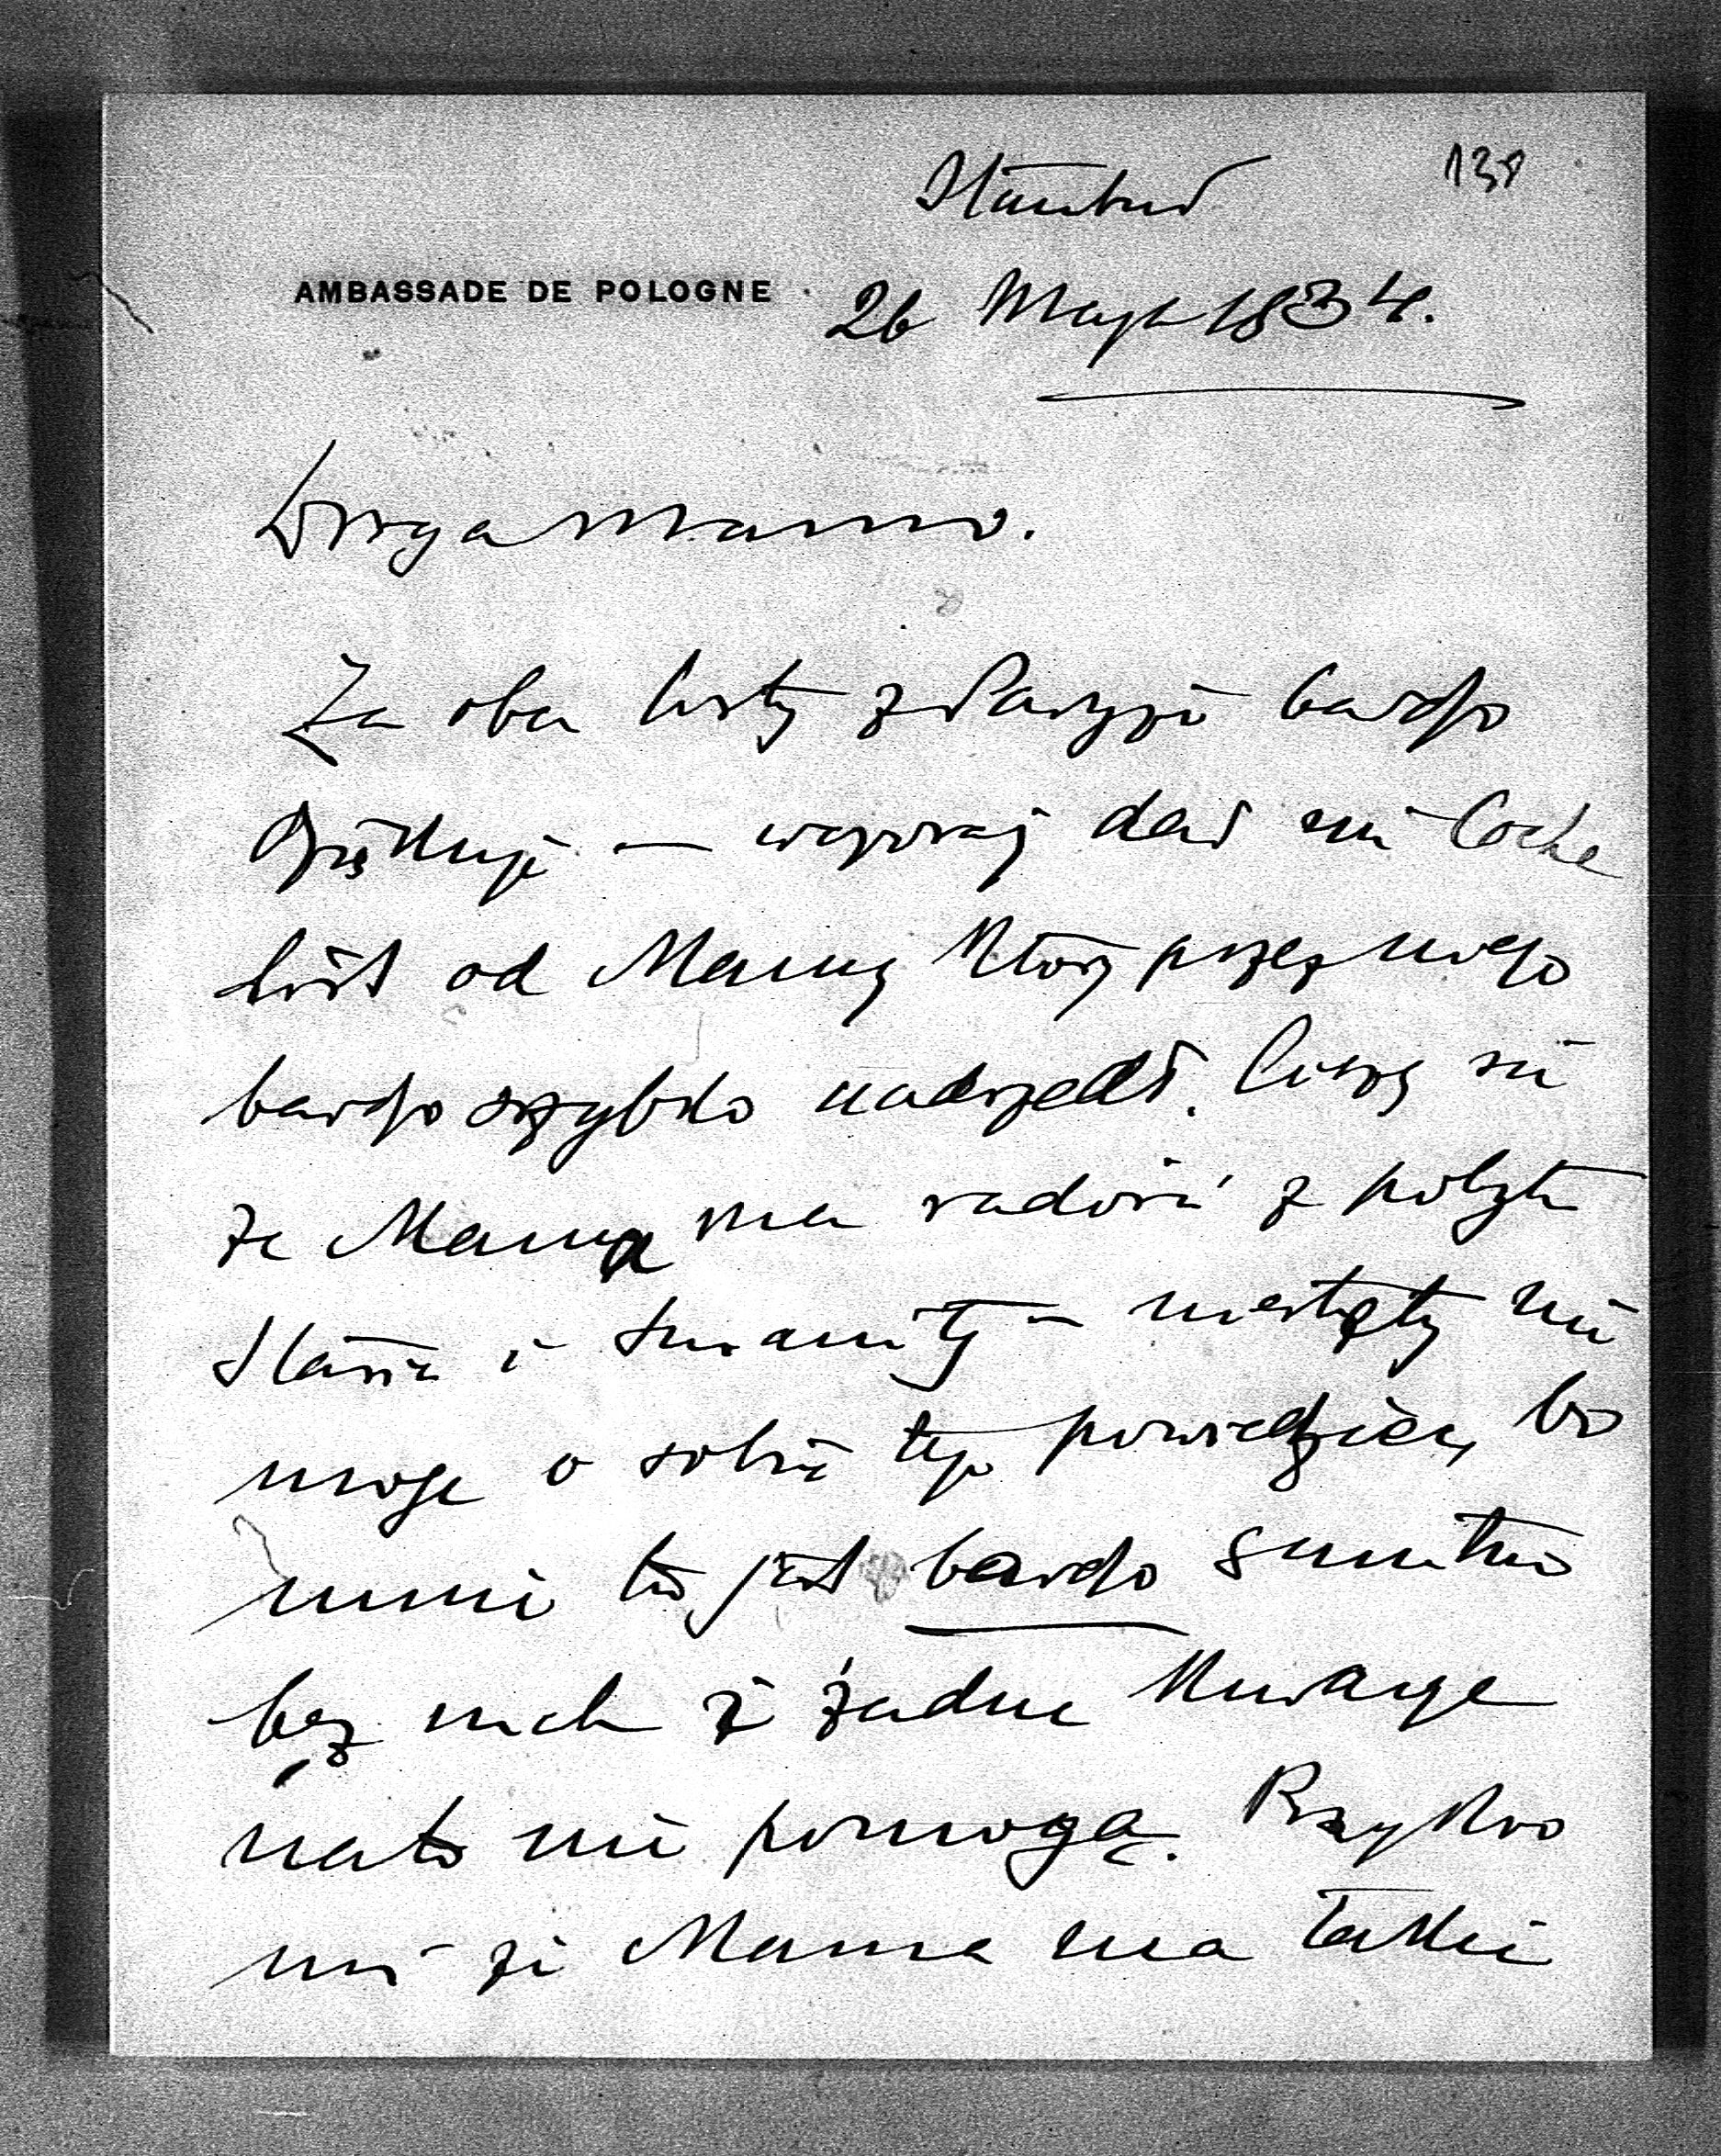 Stambuł 138
AMBASSADE DE POLOGNE 26 Maja 1834.
Droga Mamo.
Za oba listy z Paryża bardzo
dziękuję — wczoraj dał mi
list od Mamy który przez niego
bardzo szybko nadszedł. Cieszę się
że Mama ma radość z pobytu
Stasia i — niestety nie
mogę o sobie tego powiedzieć, bo
mnie to jest bardzo smutno
bez nich i żadne
na to nie pomogą. Przykro
mi że Mama ma takie